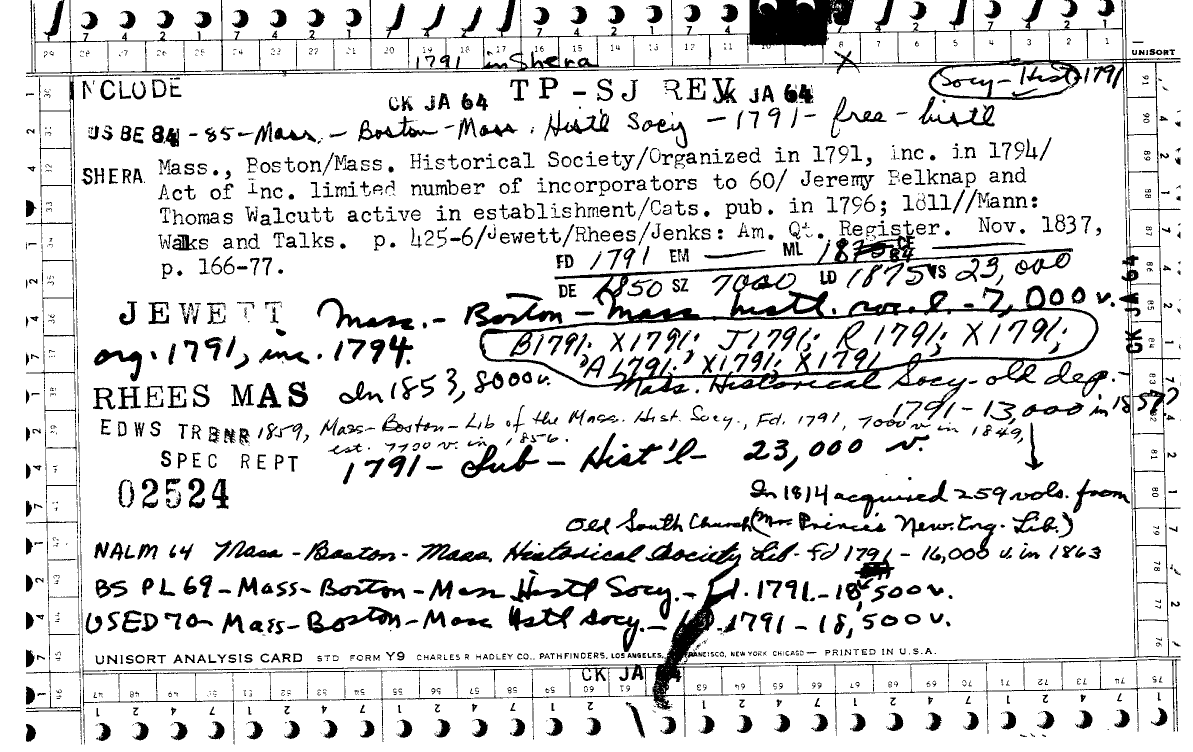 1791 in Shera
UNISORT
INCLUDE CK JA 64 TP-SJ REV CK JA 64 Socy-Hist 1791
US BE 84-85-Mass.-Boston-Mass. Histl Socy -1791- free-histl
SHERA Mass., Boston/Mass. Historical Society/Organized in 1791, inc. in 1794/
Act of Inc. limited number of incorporators to 60/ Jeremy Belknap and
Thomas Walcutt active in establishment/Cats. pub. in 1796; 1811//Mann:
Walks and Talks. p. 425-6/Jewett/Rhees/Jenks: Am. Qt. Register. Nov. 1837,
p. 166-77.
FD 1791 EM — ML 1875 CE 84 —
DE 1850 SZ 7000 LD 1875 VS 23,000
JEWETT Mass.-Boston-Mass. histl. soc. l.-7,000 v.
org. 1791, inc. 1794.
B1791; X1791; J1791; R1791; X1791;
A1791; X1791; X1791
RHEES MAS In 1853, 8000v. Mass. Historical Socy-old dep.-
1791-13,000 in 1857?
EDWS TRBNR 1859, Mass-Boston-Lib of the Mass. Hist. Socy., Fd. 1791, 7000 v. in 1849,
est. 7700 v. in 1856.
SPEC REPT 1791-Sub-Hist'l- 23,000 v.
02524
In 1814 acquired 259 vols. from
Old South Church (Mr. Prince's New Eng. Lib.)
NALM 64 Mass-Boston-Mass. Historical Society Lib-fd 1791-16,000 v. in 1863
BS PL 69-Mass-Boston-Mass Histl Socy.-Fd. 1791-18,500 v.
USED 70-Mass-Boston-Mass Hstl Socy.-Fd. 1791-18,500 v.
CK JA 64
UNISORT ANALYSIS CARD STD FORM Y9 CHARLES R HADLEY CO., PATHFINDERS, LOS ANGELES, FRANCISCO, NEW YORK CHICAGO— PRINTED IN U.S.A.
CK JA 4